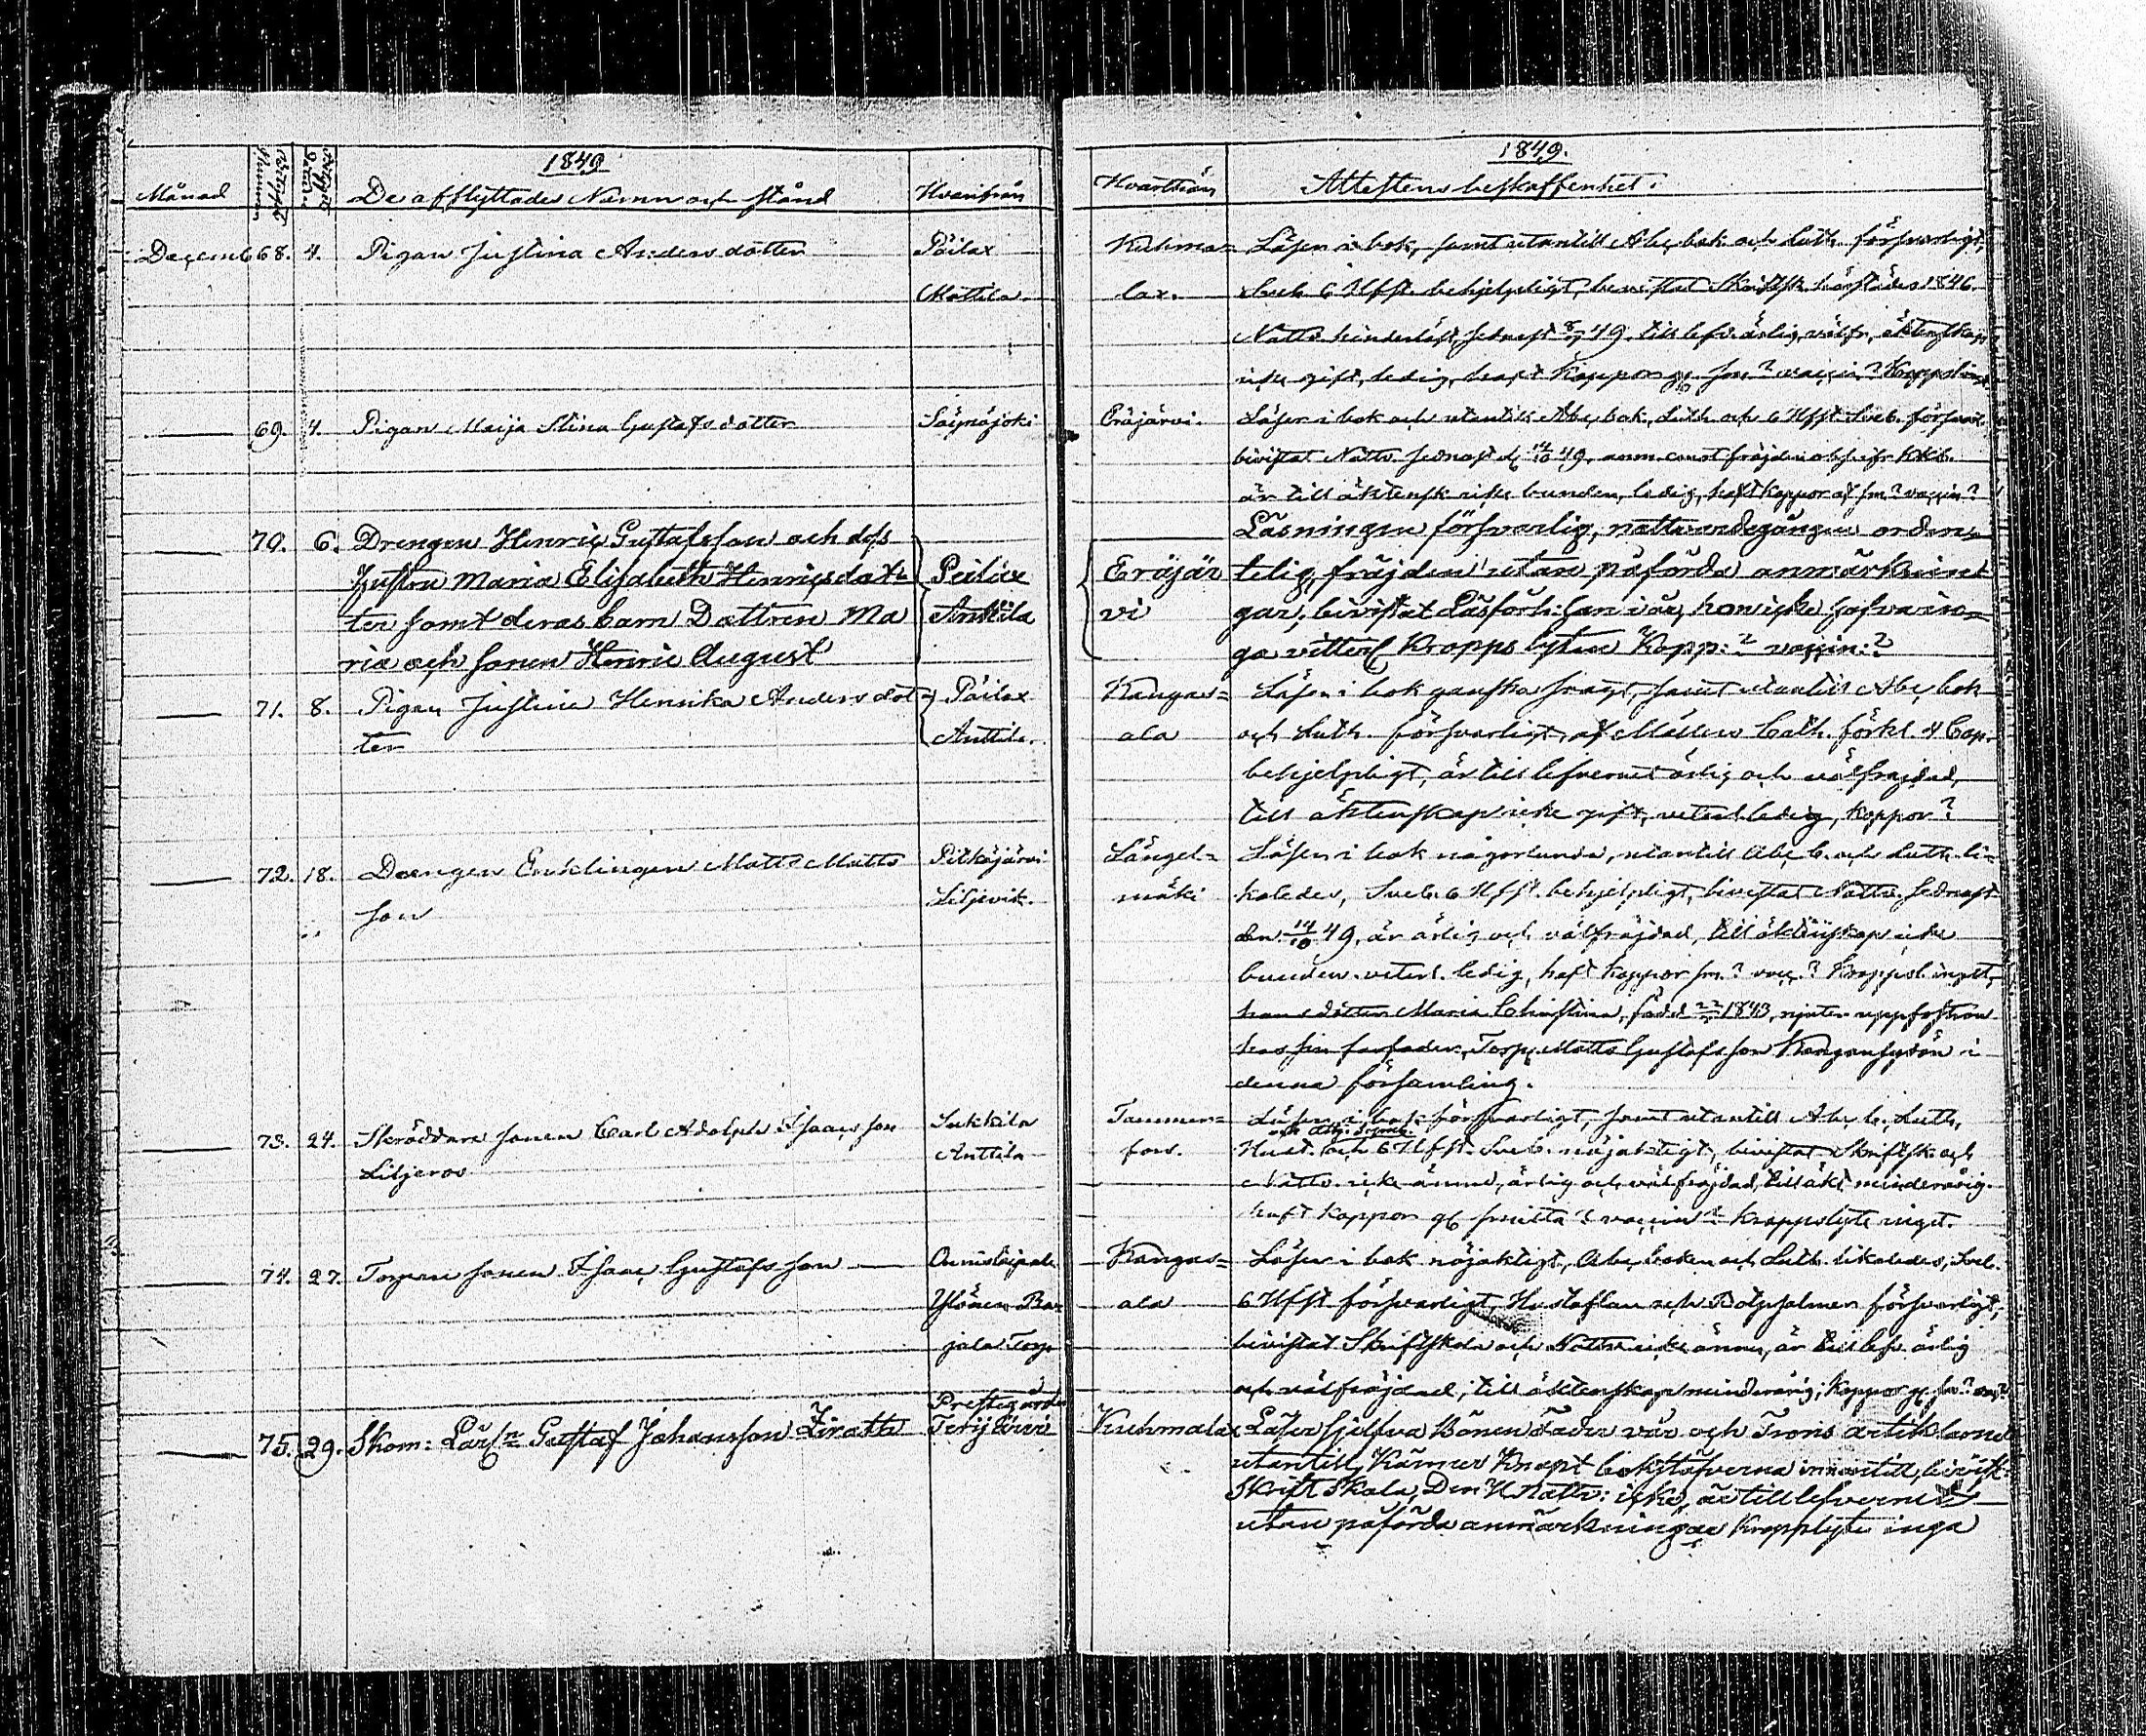 1849
Månad De afflyttades Namn och stånd Hvarifrån
Decemb 68. 4. Pigan Justina Andersdotter Päilax
Mattila.
69. 4. Pigan Maija Stina Gustafsdotter Säynäjoki
70. 6. Drengen Henric Gustafsson och dess
Hustru Maria Elisabeth Henricsdot
ter samt deras barn Dottren Ma
ria och sonen Henric August
Peilax
Anttila
71. 8. Pigan Justina Henrika Andersdot= Päilax
ter Anttila.
72. 18. Drengen Enklingen Matts Matts Pitkäjärvi
son Liljevik.
73. 24. Skräddare sonen Carl Adolph Isaacsson Sukkila
Liljeroos Anttila
74. 27. Torpare sonen Isaac Gustafsson
Ylönen
jala Torp
Prestegård
75. 29. Skom: Lärl: Gustaf Johansson
1849.
Hvarthän Attestens beskaffenhet.
Kuhma= Läser i bok, samt utantill Abc bok och Luth. försvarligt,
lax. Sveb. 6 Hfst. behjelpligt, bevistat Skriftsk. härstädes 1846.
Nattv. hinderlöst, sednast 49. till lefv. ärlig, välfr., äktenskap
icke gift, ledig, haft Koppor
Eräjärvi. Läser i bok och utantill Abc bok, Luth. och 6 Hfst. Sveb. försvarl.
bivistat Nattv. sednast d 14/10 49, anm.
är till äktensk. icke bunden, ledig, haft koppor af sm? vaccin?
Läsningen försvarlig, nattvardsgången orden=
Eräjär telig, fräjden utan påförda anmärknin
vi gar, bivistat Läsförh: han i år, hon icke
ga vitterl Kropps lyten Kopp:? vaccin:?
Kangas= Läser i bok ganska svagt, samt utantill Abc bok
ala och Luth. försvarligt, af Möllers Cath. förkl. 4 Cap.
behjelpligt, är till lefvernet ärlig och välfräjdad,
till äktenskap icke gift, veterl. ledig, koppor?
Längel= Läser i bok någorlunda, utantill Abc b. och Luth. li=
mäki kaledes, Sveb. 6 Hfst. behjelpligt, bivistat Nattv. sednast
den 14/10 49, är ärlig och välfräjdad, till äktenskap icke
bunden, veterl. ledig, haft koppor sm.? vacc.? Kroppsl. inget,
hans dotter Maria Christina, född 1843, njuter uppfostran
hos sin farfader, Torp. Matts Gustafsson i
denna församling.
Tammer= Läser i bok försvarligt, samt utantill Abc b. Luth.
fors. Hust. och 6 Hfst. Sveb. nöjaktigt, bivistat Skriftsk. och
Nattv. icke ännu, ärlig och välfräjdad, till äkt. minderårig.
haft koppor smitta? vaccin? kroppslyte inget.
Kangas= Läser i bok nöjaktigt, Abc boken och Luth. likaledes, Sveb.
ala 6 Hfst försvarligt, Hustaflan och Botpsalmen försvarligt;
bivistat Skriftskola och Nattv. icke ännu, är till lefv. ärlig
och välfräjdad, till äktenskap minderårig; Koppor
Kuhmalax Läser sjelfva Bönen Fader vår och Trons artiklarne
utantill, Känner Knapt bokstäfverna innantill, bivist:
Skrift Skola, Den H Nattv: icke, är till lefvernet
utan påförda anmärkningar Kropplyte inga